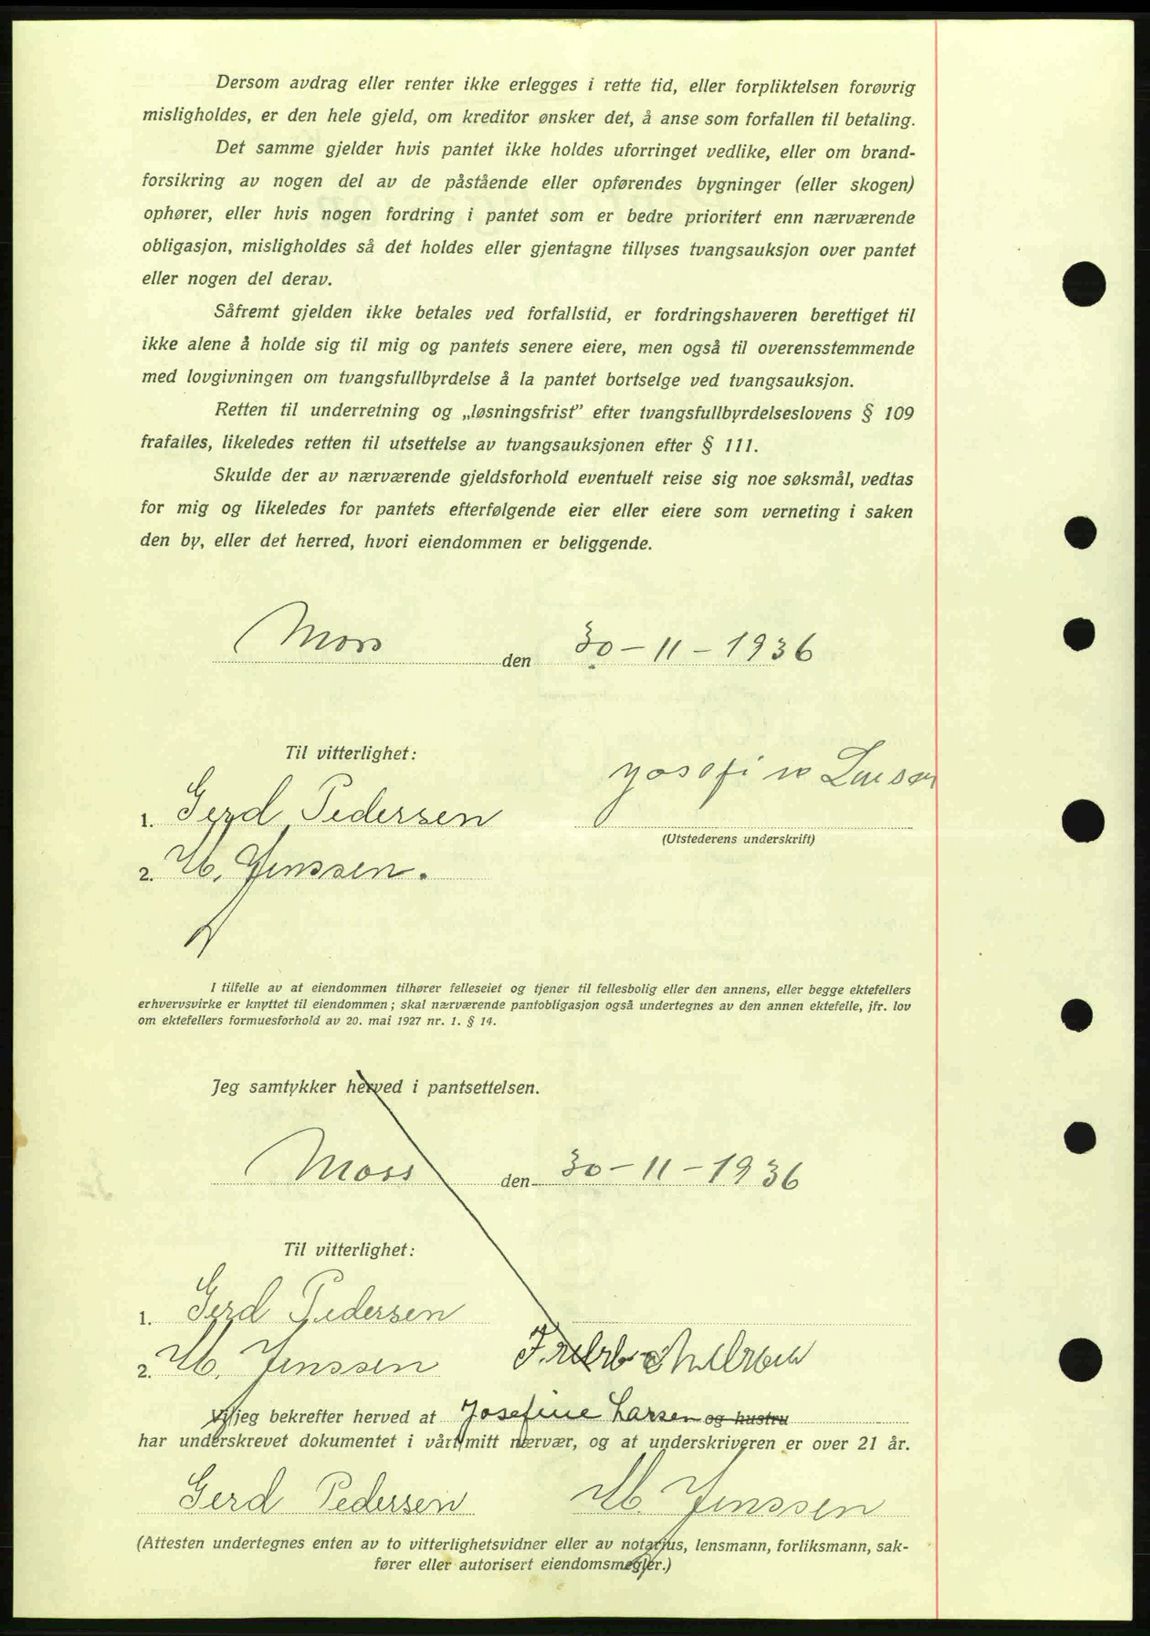 Dersom avdrag eller renter ikke erlegges i rette tid, eller forpliktelsen forøvrig
misligholdes, er den hele gjeld, om kreditor ønsker det, å anse som forfallen til betaling.
Det samme gjelder hvis pantet ikke holdes uforringet vedlike, eller om brand-
forsikring av nogen del av de påstående eller opførendes bygninger (eller skogen)
ophører, eller hvis nogen fordring i pantet som er bedre prioritert enn nærværende
obligasjon, misligholdes så det holdes eller gjentagne tillyses tvangsauksjon over pantet
eller nogen del derav.
Såfremt gjelden ikke betales ved forfallstid, er fordringshaveren berettiget til
ikke alene å holde sig til mig og pantets senere eiere, men også til overensstemmende
med lovgivningen om tvangsfullbyrdelse å la pantet bortselge ved tvangsauksjon.
Retten til underretning og „løsningsfrist” efter tvangsfullbyrdelseslovens § 109
frafalles, likeledes retten til utsettelse av tvangsauksjonen efter § 111.
Skulde der av nærværende gjeldsforhold eventuelt reise sig noe søksmål, vedtas
for mig og likeledes for pantets efterfølgende eier eller eiere som verneting i saken
den by, eller det herred, hvori eiendommen er beliggende.
Moss den 30-11-1936
Til vitterlighet:
Josefine Larsen
1. Gerd Pedersen
(Utstederens underskrift)
2. M. Jenssen.
I tilfelle av at eiendommen tilhører felleseiet og tjener til fellesbolig eller den annens, eller begge ektefellers
erhvervsvirke er knyttet til eiendommen; skal nærværende pantobligasjon også undertegnes av den annen ektefelle, jfr. lov
om ektefellers formuesforhold av 20. mai 1927 nr. 1. § 14.
Jeg samtykker herved i pantsettelsen.
Moss den 30-11-1936
Til vitterlighet:
1. Gerd Pedersen
2. M. Jenssen
Vi/jeg bekrefter herved at Josefine Larsen og hustru
har underskrevet dokumentet i vårt/mitt nærvær, og at underskriveren er over 21 år.
Gerd Pedersen M. Jenssen
(Attesten undertegnes enten av to vitterlighetsvidner eller av notarius, lensmann, forliksmann, sak-
fører eller autorisert eiendomsmegler.)